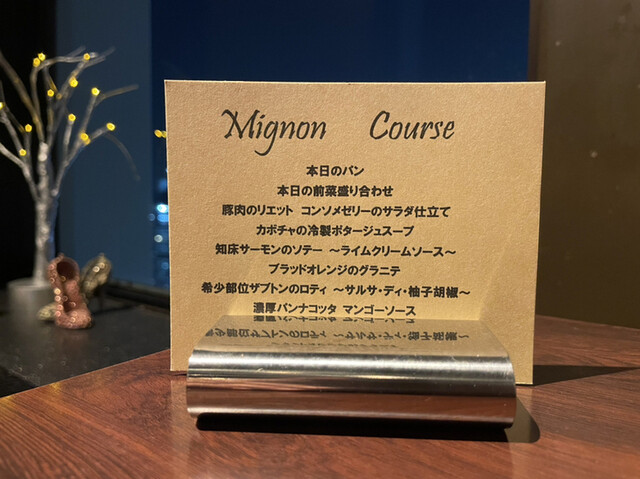 Mignon Course
本日のパン
本日の前菜盛り合わせ
豚肉のリエット コンソメゼリーのサラダ仕立て
カボチャの冷製ポタージュスープ
知床サーモンのソテー ～ライムクリームソース～
ブラッドオレンジのグラニテ
希少部位ザブトンのロティ ～サルサ・ディ・柚子胡椒～
濃厚パンナコッタ マンゴーソース